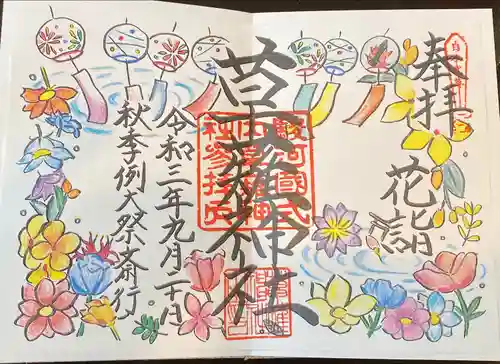 奉拝
花詣
草薙神社
駿河國式
内草薙神
社参拝之
令和三年九月二十日
秋季例大祭斎行